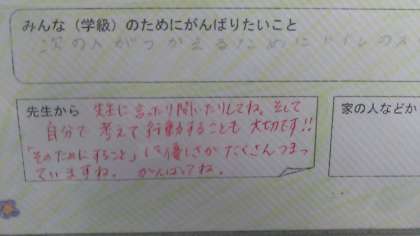 みんな（学級）のためにがんばりたいこと
次の人がつかえるためにトイレのス
先生から 先生に言ったり聞いたりしてね。そして
自分で考えて行動することも大切です!!
「そのためにすること」に優しさがたくさんつまっ
ていますね。がんばってね。
家の人などか